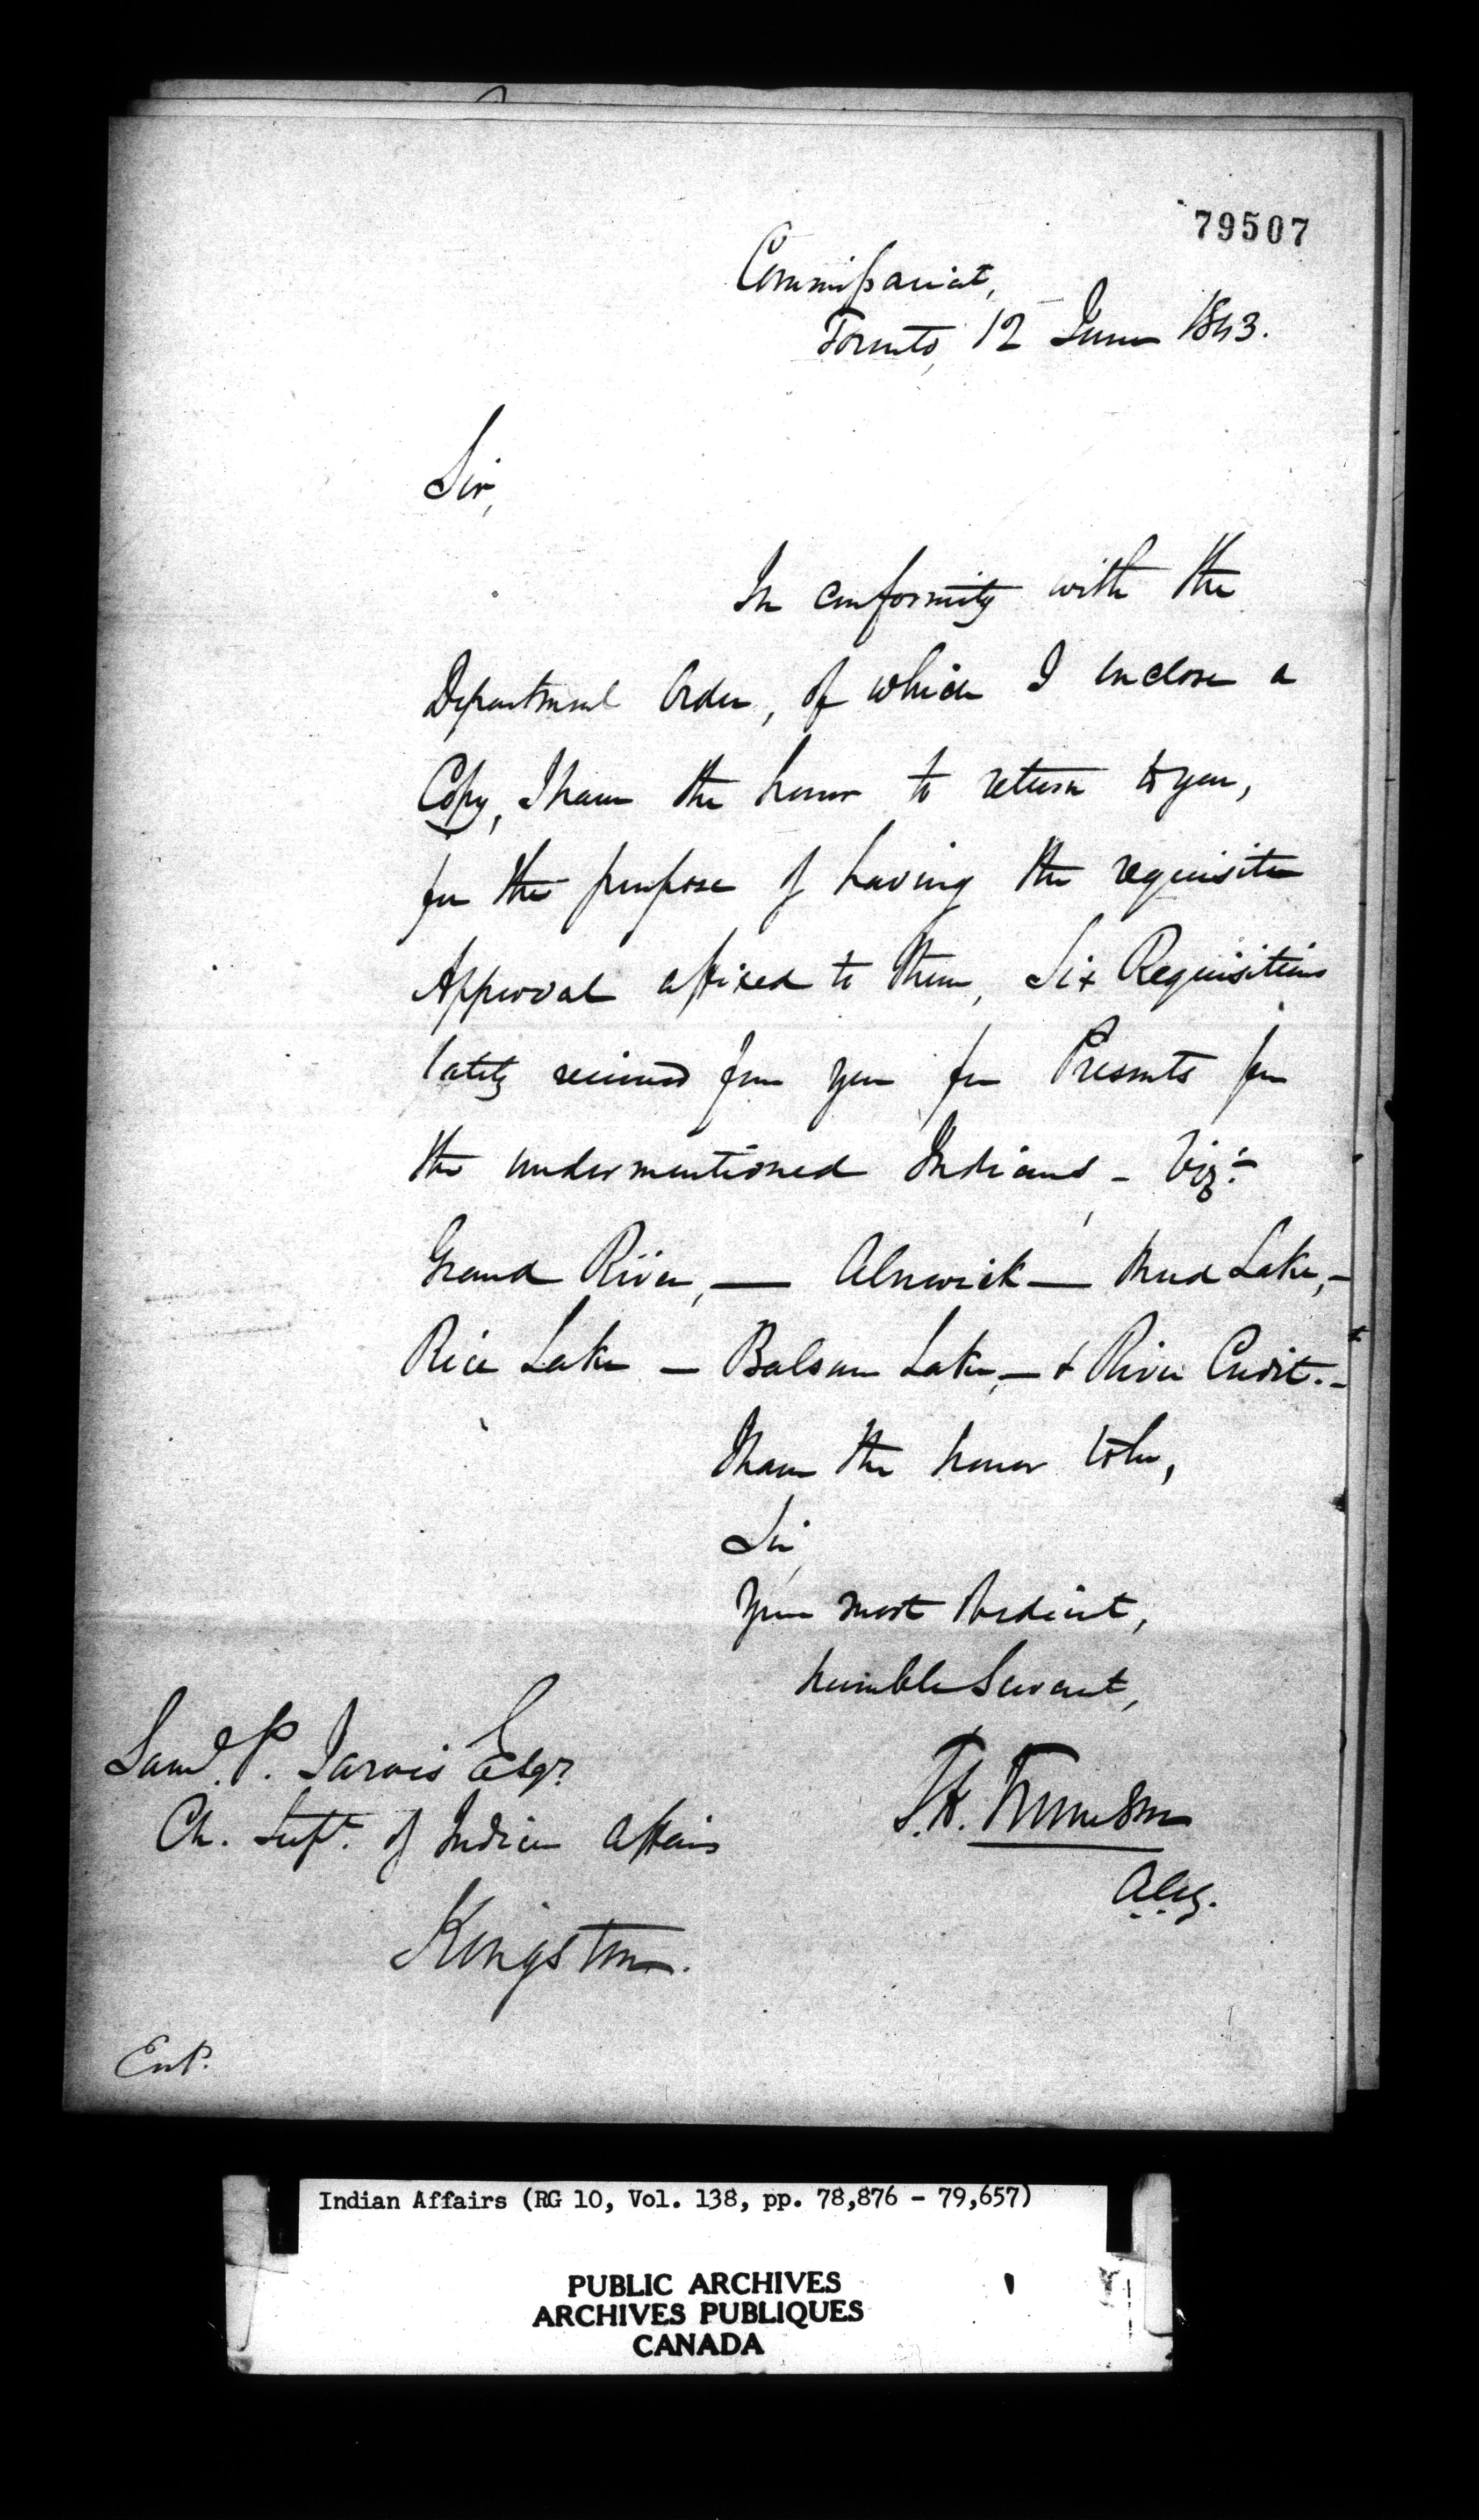 79507
Commissariat,
Toronto, 12 June 1843.
Sir,
In conformity with the
Departmental Order, of which I enclose a
Copy, I have the honor to return to you,
for the purpose of having the requisite
Approval affixed to them, Six Requisitions
lately received from you for Presents for
the undermentioned Indians, - Viz:-
Grand River, — Alnwick — Mud Lake, -
Rice Lake — Balsam Lake, — & River Credit. -
I have the honor to be,
Sir,
Your most Obedient,
humble Servant,
Saml. P. Jarvis Esqr.
Ch. Supt. of Indian Affairs
Kingston.
A.C.G.
Indian Affairs (RG 10, Vol. 138, pp. 78,876 - 79,657)
PUBLIC ARCHIVES
ARCHIVES PUBLIQUES
CANADA